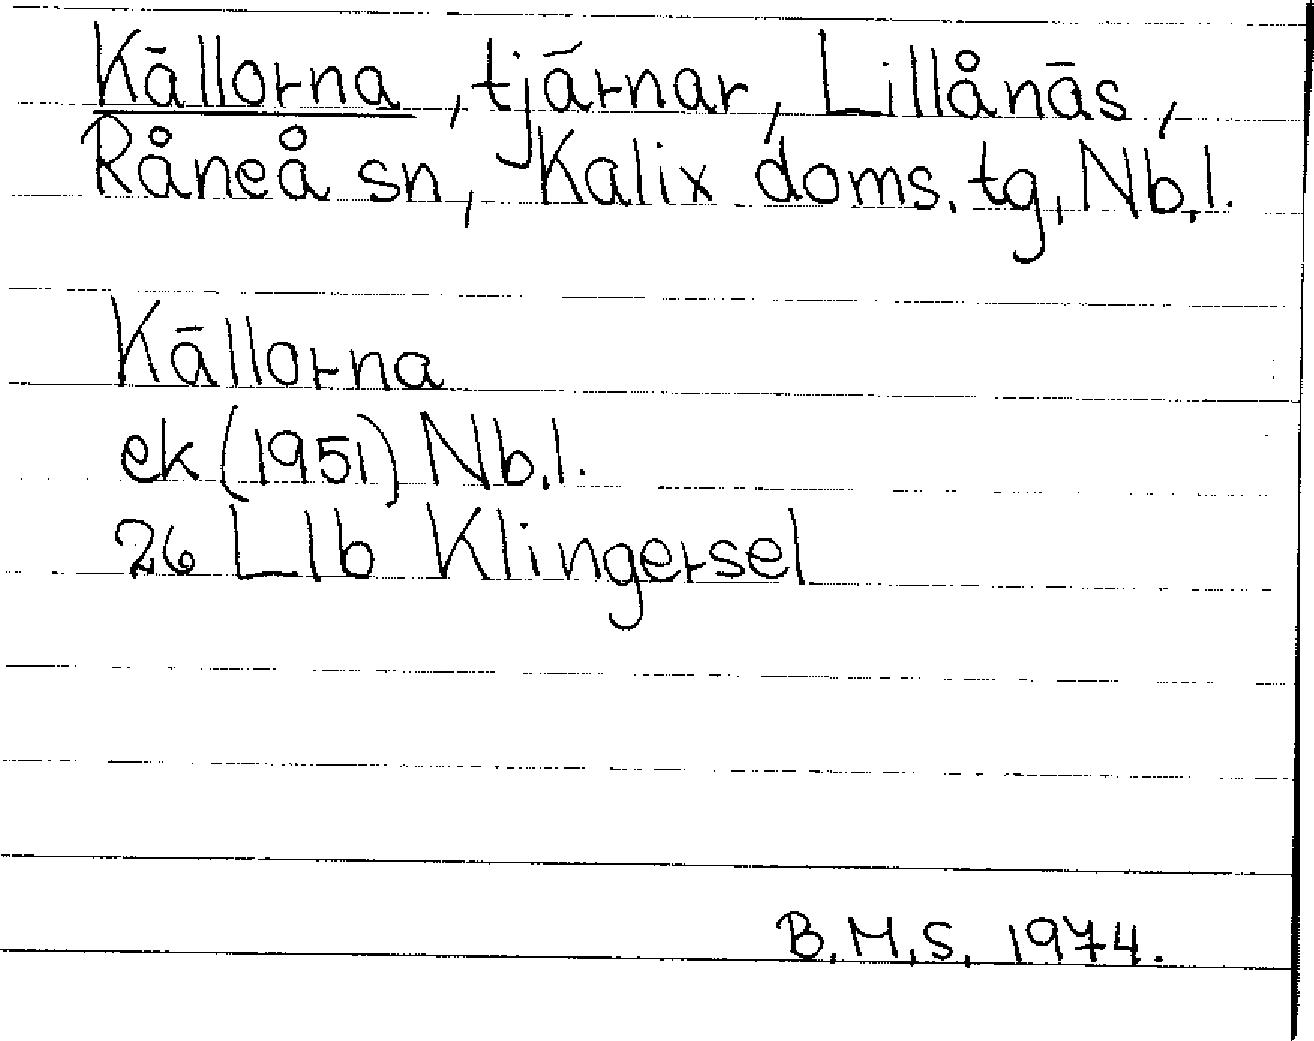 Källorna, tjärnar, Lillånäs,
Råneå sn, Kalix doms. tg, Nb.l.
Källorna
ek (1951) Nb.l.
26 L1b Klingersel
B.M.S. 1974.